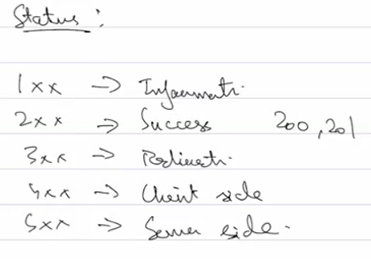 Status :
1xx → Informati.
2xx → Success 200, 201
3xx → Redirecti.
4xx → Client side
5xx → Server side.